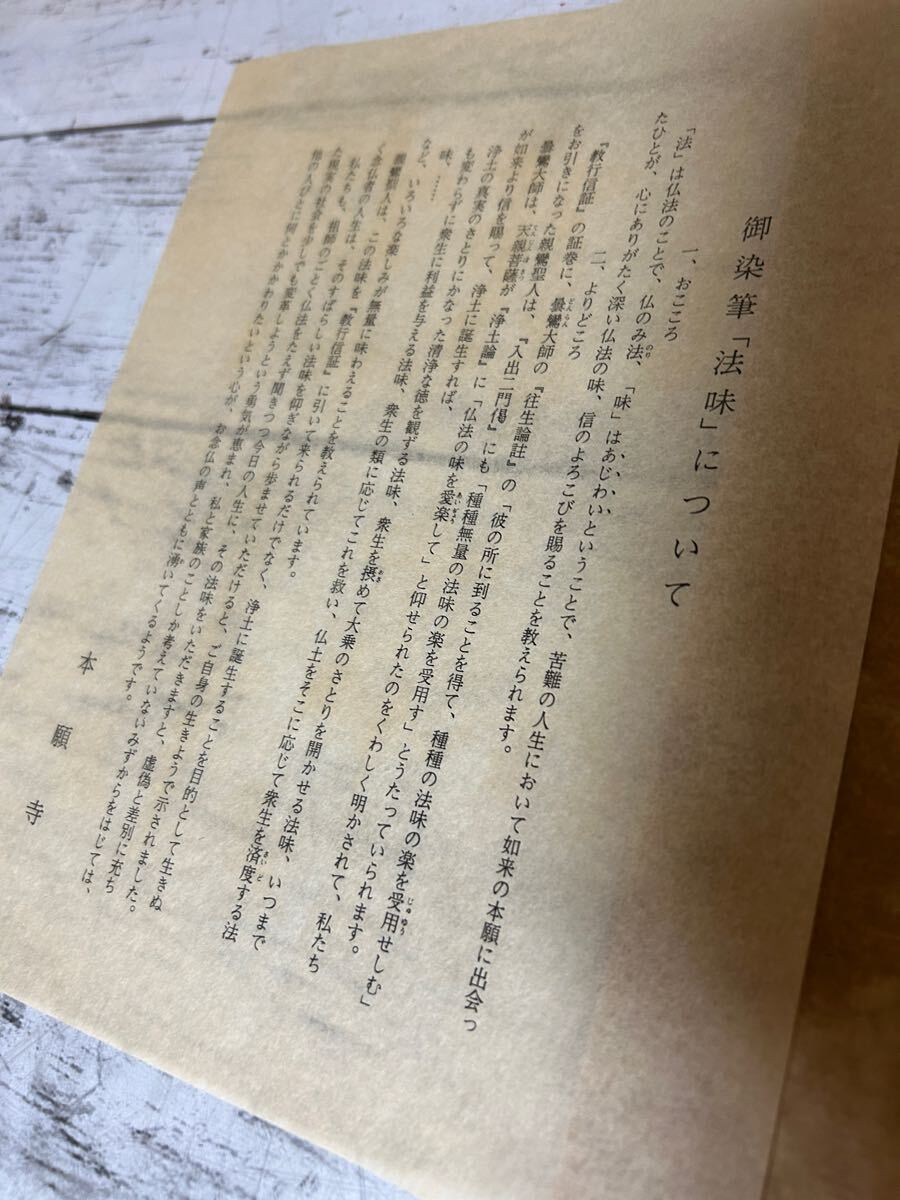 御染筆「法味」について
一、おこころ
「法」は仏法のことで、仏のみ法、「味」はあじわいということで、苦難の人生において如来の本願に出会っ
たひとが、心にありがたく深い仏法の味、信のよろこびを賜ることを教えられます。
二、よりどころ
『教行信証』の証巻に、曇鸞大師の『往生論註』の「彼の所に到ることを得て、種種の法味の楽を受用せしむ」
をお引きになった親鸞聖人は、『入出二門偈』にも「種種無量の法味の楽を受用す」とうたっていられます。
曇鸞大師は、天親菩薩が『浄土論』に「仏法の味を愛楽して」と仰せられたのをくわしく明かされて、私たち
が如来より信を賜って、浄土に誕生すれば、
浄土の真実のさとりにかなった清浄な徳を観ずる法味、衆生を摂めて大乗のさとりを開かせる法味、いつまで
も変わらずに衆生に利益を与える法味、衆生の類に応じてこれを救い、仏土をそこに応じて衆生を済度する法
味、……
など、いろいろな楽しみが無量に味わえることを教えられています。
親鸞聖人は、この法味を『教行信証』に引いて来られるだけでなく、浄土に誕生することを目的として生きぬ
く念仏者の人生は、そのすばらしい法味を仰ぎながら歩ませていただけると、ご自身の生きようで示されました。
私たちも、祖師のごとく仏法をたえず聞きつつ今日の人生に、その法味をいただきますと、虚偽と差別に充ち
た現実の社会を少しでも変革しようという勇気が恵まれ、私と家族のことしか考えていないみずからをはじては、
他の人びとに何とかかかわりたいという心が、お念仏の声とともに湧いてくるようです。
本願寺